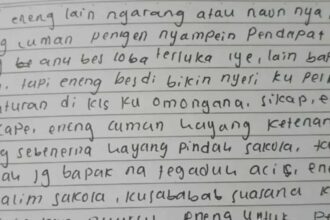 eneng lain ngarang atau naon nya
cuman pengen nyampein Pendapat
anu bes loba terluka iye, lain ba
tapi eneng besdi bikin nyeri ku per
turan di kls ku omongana, sikap, e
cape, eneng cuman hayang ketenar
g sebenerna hayang pindah sakola, ka
ah jg bapak na tegaduh acis, en
alim sakola, kusababab suasana k
eneng untuk